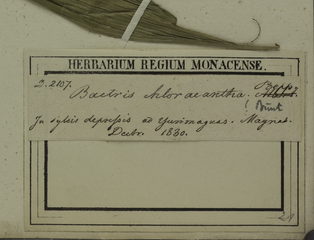 HERBARIUM REGIUM MONACENSE.
D. 2107.
Bactris chloracantha. Popp.
In sylvis depressis ad Yurimaguas. Maynas.
Decbr. 1830.